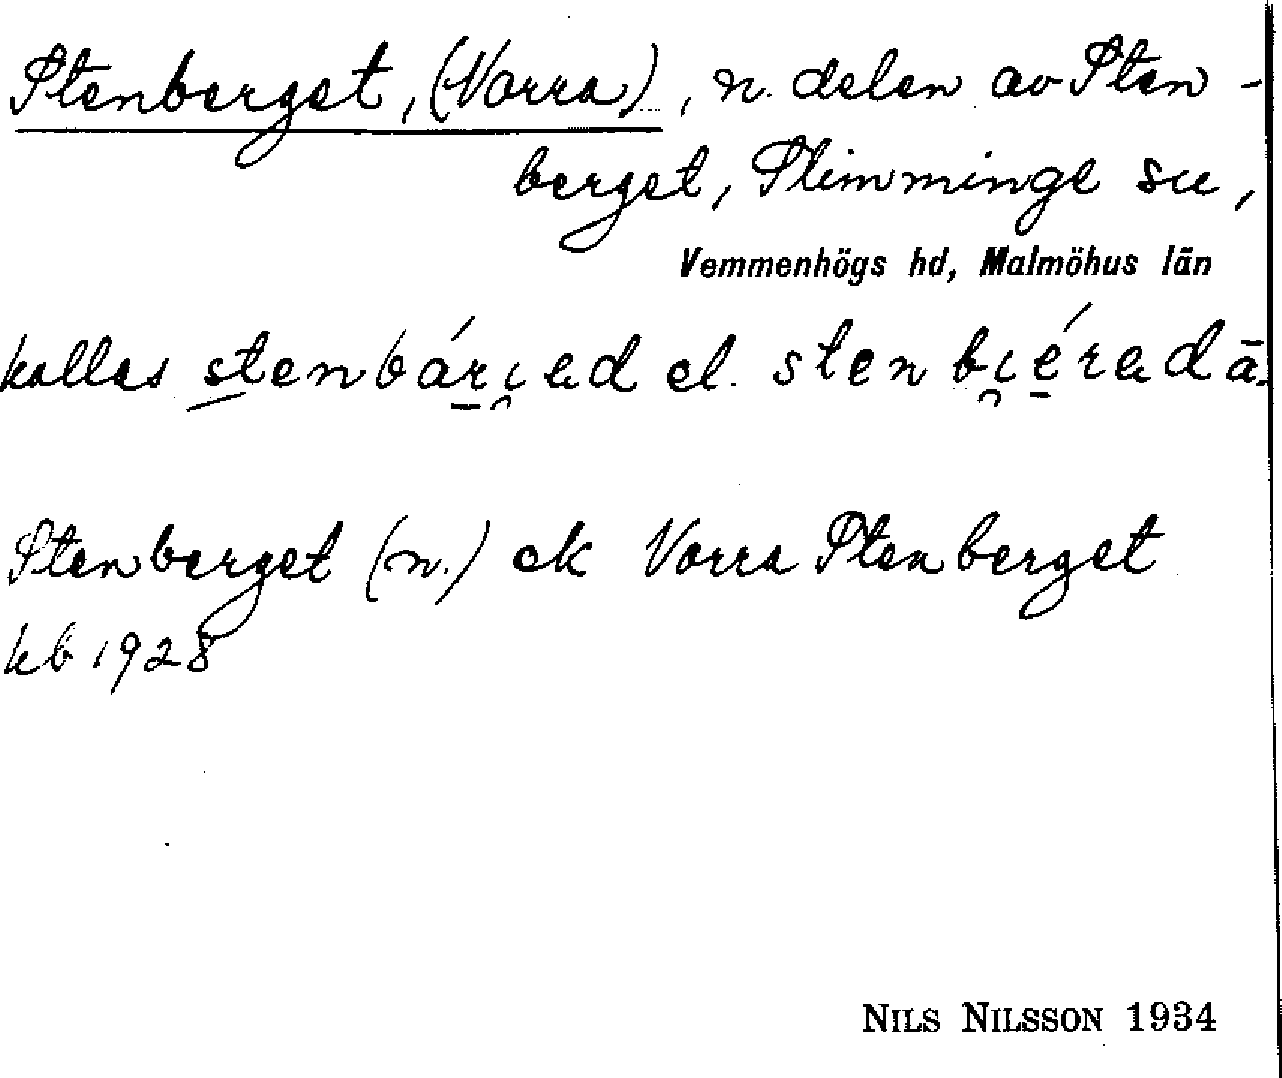 Stenberget, (Norra), n. delen av Sten-
berget, Slimminge sn,
Vemmenhögs hd, Malmöhus län
kallas
el.
Stenberget (n.) ek Norra Stenberget
kb 1928
NILS NILSSON 1934